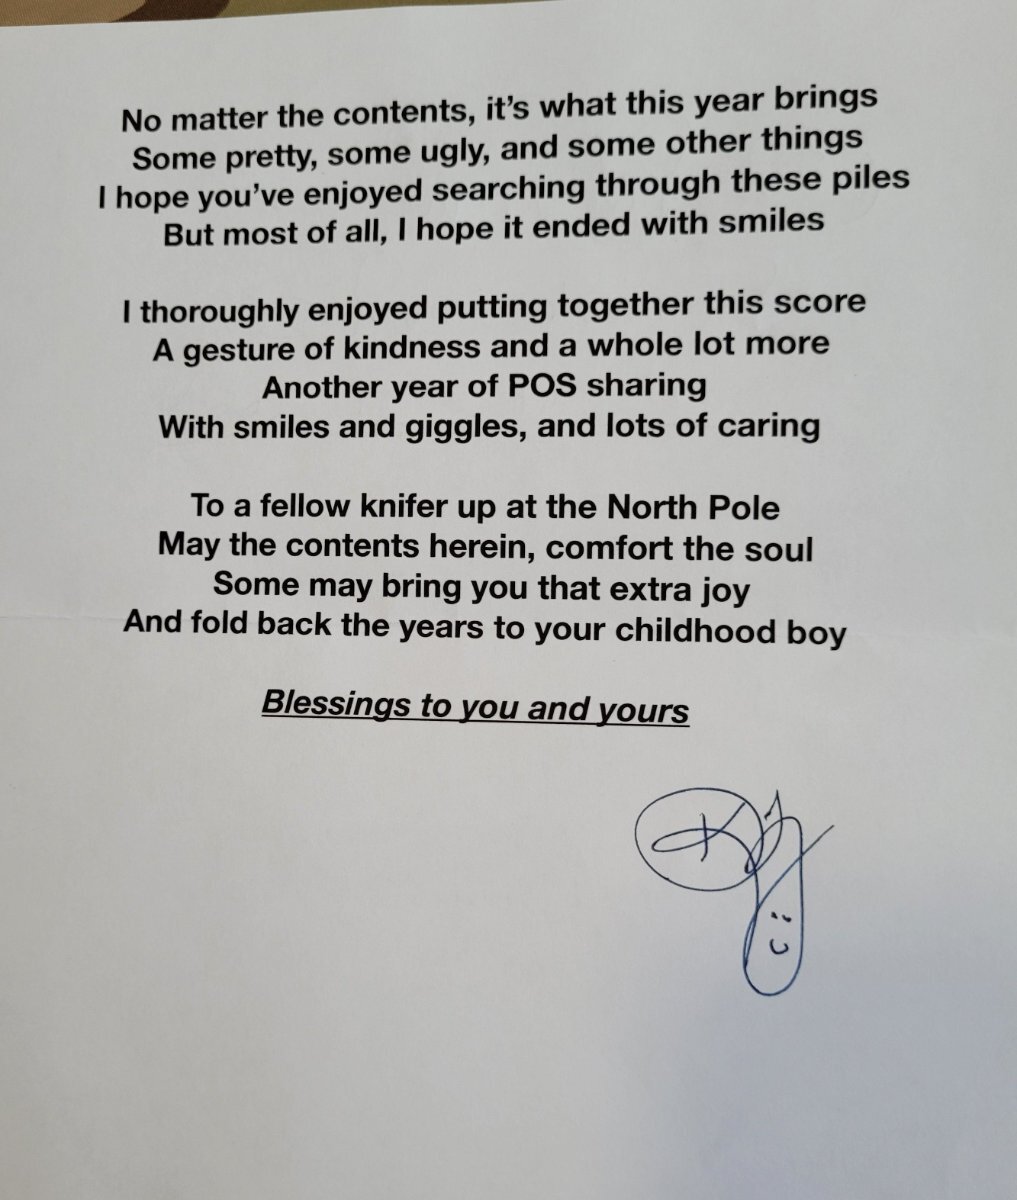 No matter the contents, it's what this year brings
Some pretty, some ugly, and some other things
I hope you've enjoyed searching through these piles
But most of all, I hope it ended with smiles
I thoroughly enjoyed putting together this score
A gesture of kindness and a whole lot more
Another year of POS sharing
With smiles and giggles, and lots of caring
To a fellow knifer up at the North Pole
May the contents herein, comfort the soul
Some may bring you that extra joy
And fold back the years to your childhood boy
Blessings to you and yours